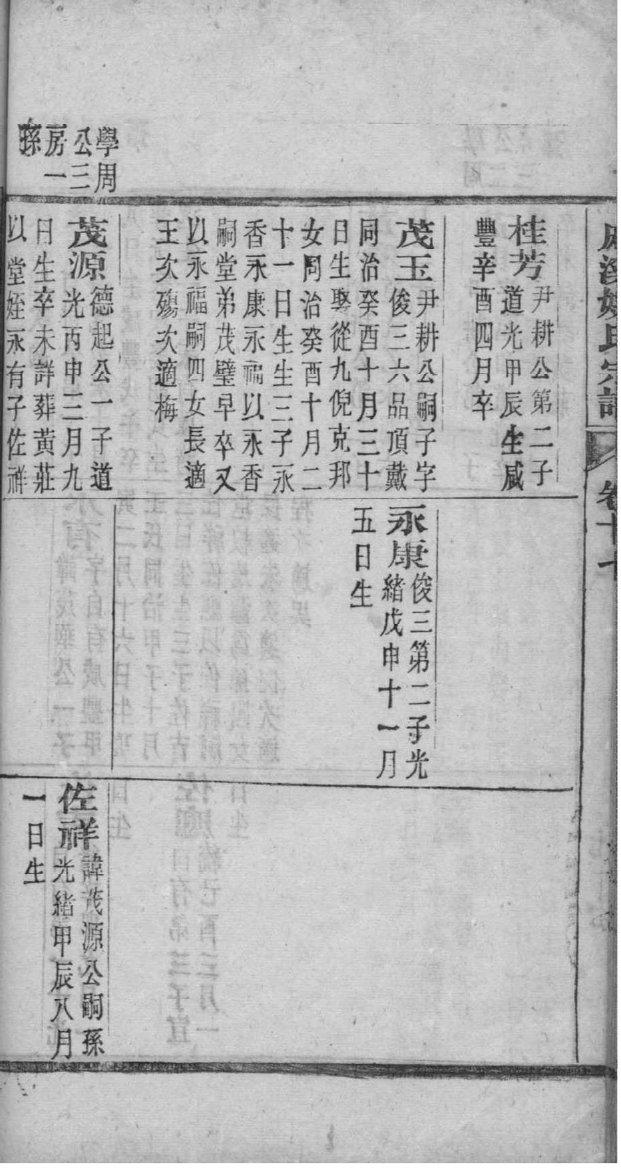 姚氏宗譜
卷十七
桂芳尹耕公第二子
道光甲辰生咸
豐辛酉四月卒
茂玉尹耕公嗣子字
俊三六品頂戴
同治癸酉十月三十
日生娶從九倪克邦
女同治癸酉十月二
十一日生生三子永
香永康永福以永香
嗣堂弟茂璧早卒又
以永福嗣四女長適
王次殤次適梅
學周
公三
房一
孫
茂源德起公一子道
光丙申三月九
日生卒未詳葬黃莊
以堂姪永有子佐祥
永康俊三第二子光
緒戊申十一月
五日生
佐祥諱茂源公嗣孫
光緒甲辰八月
一日生